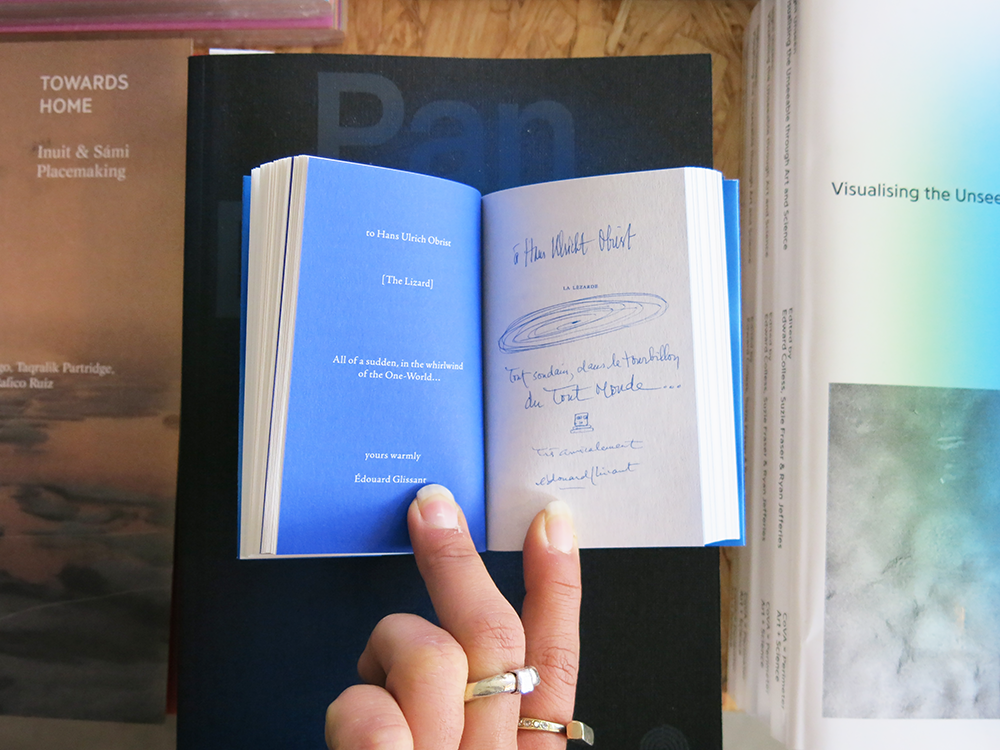 TOWARDS
HOME
Inuit & Sámi
Placemaking
go, Taqralik Partridge,
afico Ruiz
Pan
to Hans Ulrich Obrist
[The Lizard]
All of a sudden, in the whirlwind
of the One-World...
yours warmly
Édouard Glissant
à Hans Ulricht Obrist
LA LÉZARDE
Tout soudain, dans le tourbillon
du Tout Monde...
Très amicalement
edouard glissant
Visualising the Unsee
the Unseeable through Art and Science
Edited by
Edward Colless, Suzie Fraser & Ryan Jefferies
Art + Science